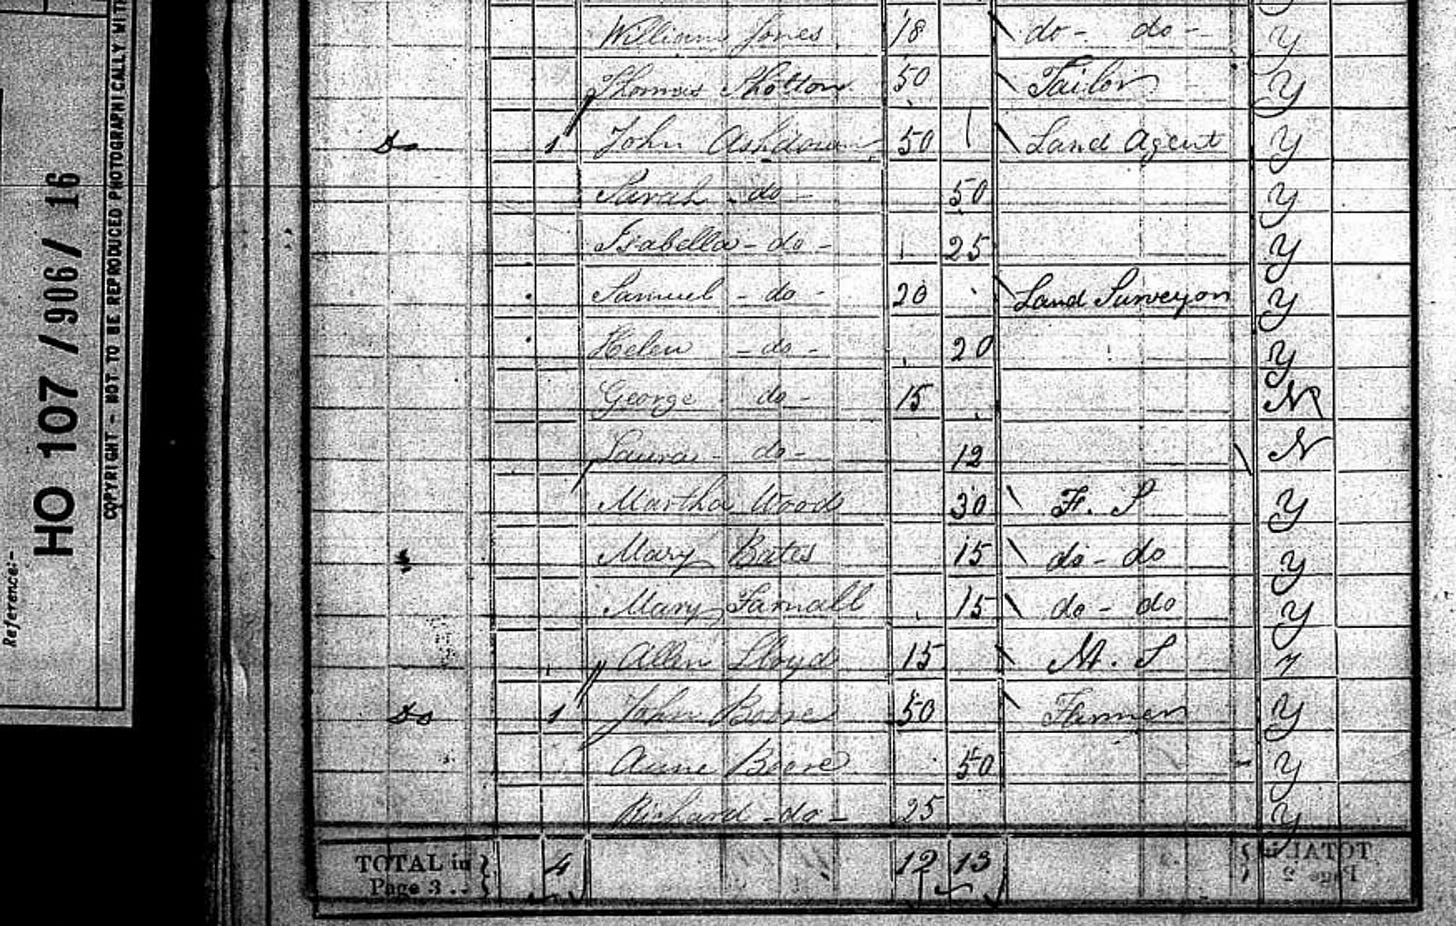 William Jones 18 do - do - Y
Thomas Shotton 50 Tailor Y
Do 1 John Ashdown 50 Land Agent Y
Sarah - do - 50 Y
Isabella - do - 25 Y
Samuel - do - 20 Land Surveyor Y
Helen - do - 20 Y
George do - 15 N
Laura - do - 12 N
Martha Wood 30 F. S Y
Mary Bates 15 do - do Y
Mary Farnall 15 do - do Y
Allen Lloyd 15 M. S
Do 1 John Boore 50 Farmer Y
Anne Boore 50 Y
Richard - do - 25 Y
TOTAL in Page 3 .. } 4 12 13
TOTAL in Page 2
Reference:-
HO 107 / 906 / 16
COPYRIGHT - NOT TO BE REPRODUCED PHOTOGRAPHICALLY